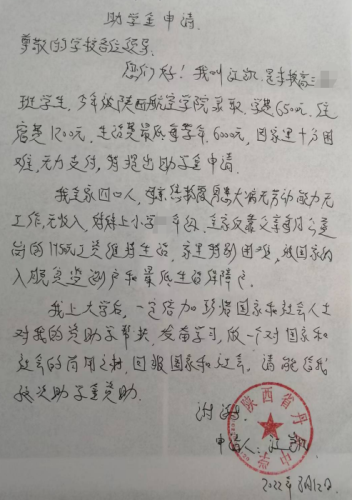 助学金申请
尊敬的学校各位领导:
您们好!我叫江凯,是本校高三
班学生,今年被陕西航空学院录取,学费6500元,住
宿费1200元,生活费最低每学年6000元,因家里十分困
难,无力支付,特提出助学金申请。
我全家四口人,母亲患大病无劳动能力无
工作,无收入,妹妹上小学 年级,全家仅靠父亲每月公益
岗的1750元工资维持生活,家里特别困难,被国家纳
入脱贫 户和最低生活保障户。
我上大学后,一定倍加珍惜国家和社会人士
对我的资助和帮扶,发奋学习,做一个对国家和
社会的有用之材,回报国家和社会。请批准我
资助学金资助。
谢谢
申请人:江凯
2022年8月12日
陕西省丹 中学